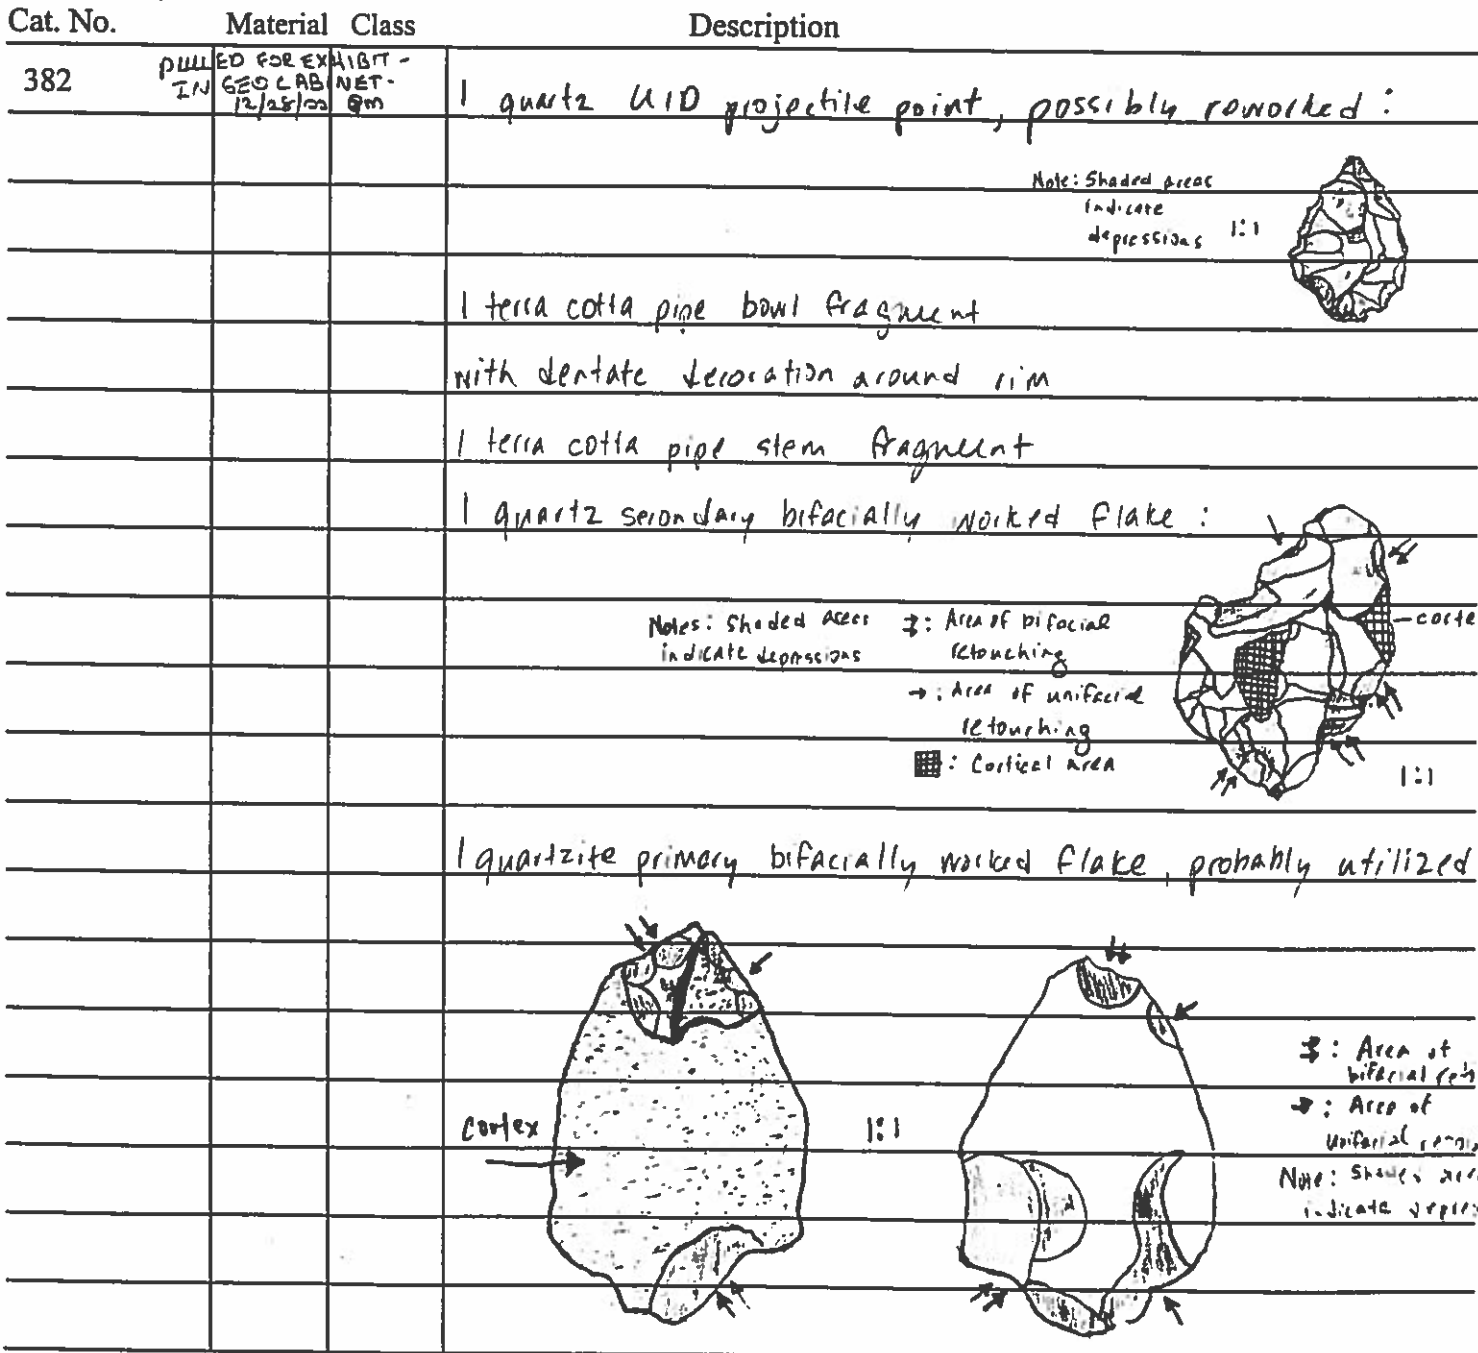 Cat. No. Material Class Description
382
PULLED FOR EXHIBIT -
IN GEO CABINET -
12/28/00
1 quartz UID projectile point, possibly reworked :
Note: Shaded areas
indicate
depressions
1:1
1 terra cotta pipe bowl fragment
with dentate decoration around rim
1 terra cotta pipe stem fragment
1 quartz secondary bifacially worked flake :
Notes: Shaded areas
indicate depressions
: Area of bifacial
retouching
→ : Area of unifacial
retouching
: Cortical area
corte
1:1
1 quartzite primary bifacially worked flake, probably utilized
Cortex
1:1
: Area of
bifacial
→ : Area of
unifacial
Note: Shaded
indicate